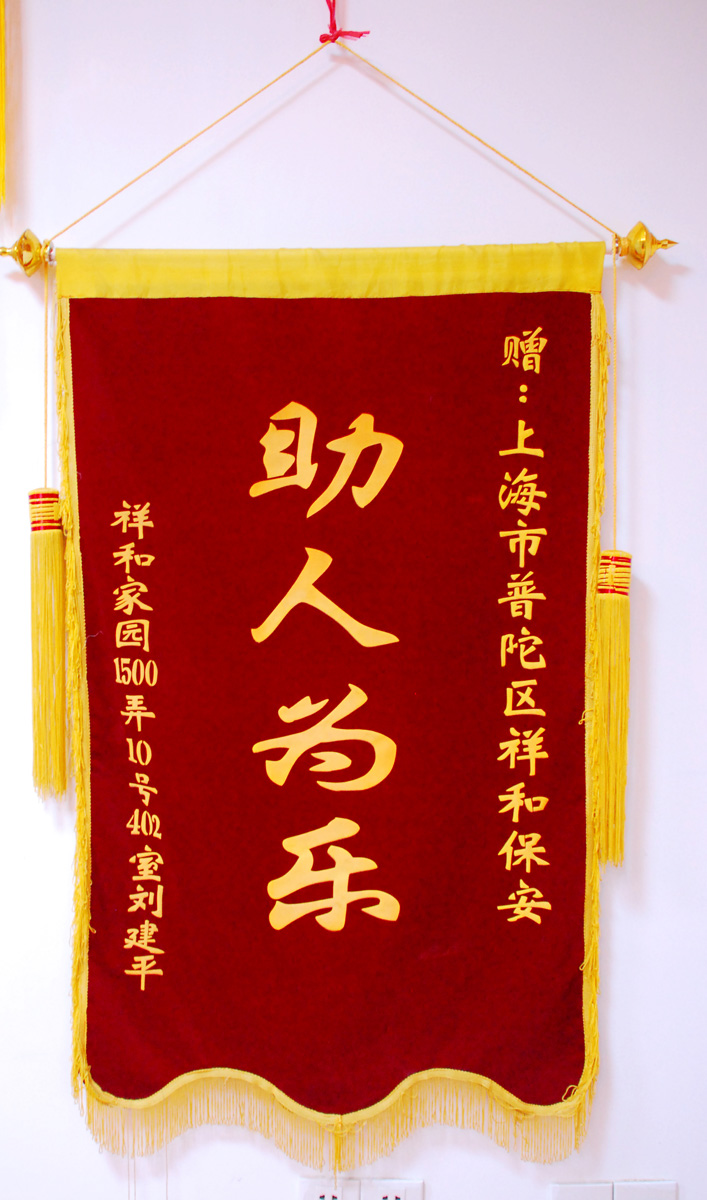 赠：上海市普陀区祥和保安
助人为乐
祥和家园1500弄10号402室刘建平